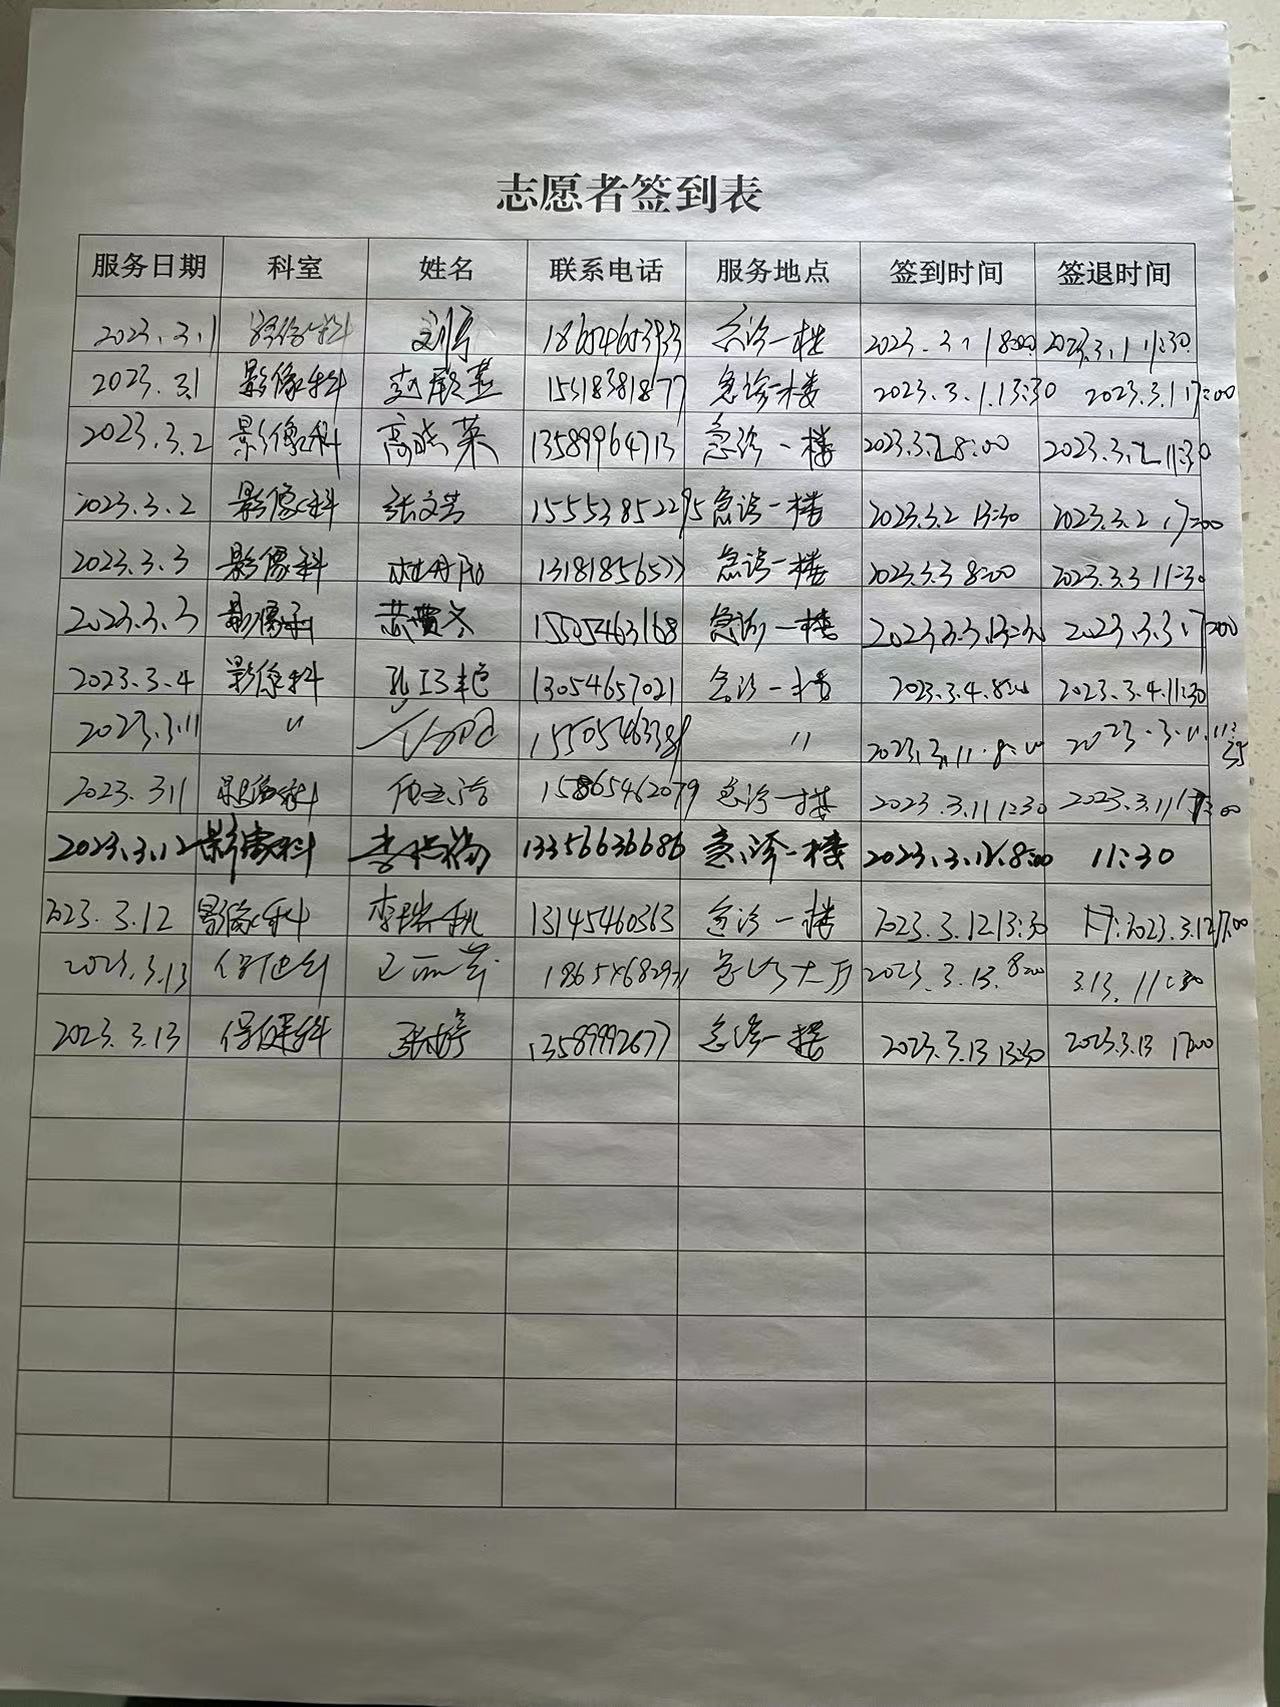 志愿者签到表
服务日期 科室 姓名 联系电话 服务地点 签到时间 签退时间
2023.3.1 影像科 刘宁 急诊一楼 2023.3.1 8:00 2023.3.1 11:30
2023.3.1 影像科 15318381877 急诊一楼 2023.3.1.13:30 2023.3.1 17:00
2023.3.2 影像科 高晓英 13589964713 急诊一楼 2023.3.2 8:00 2023.3.2 11:30
2023.3.2 影像科 张文芳 15553852295 急诊一楼 2023.3.2 13:30 2023.3.2 17:00
2023.3.3 影像科 13181856577 急诊一楼 2023.3.3 8:00 2023.3.3 11:30
2023.3.3 影像科 15505463168 急诊一楼 2023.3.3.13:30 2023.3.3.17:00
2023.3.4 影像科 13054657021 急诊一楼 2023.3.4.8:00 2023.3.4.11:30
2023.3.11 〃 〃 2023.3.11.8:00 2023.3.11.11:35
2023.3.11 影像科 15865462079 急诊一楼 2023.3.11 1:30 2023.3.11 17:00
2023.3.12 影像科 13356636686 急诊一楼 2023.3.12.8:00 11:30
2023.3.12 影像科 13145460363 急诊一楼 2023.3.12 13:30 2023.3.12 17:00
2023.3.13 保健科 急诊大厅 2023.3.13.8:00 3.13. 11:30
2023.3.13 保健科 张婷 13589992677 急诊一楼 2023.3.13 13:30 2023.3.13 17:00